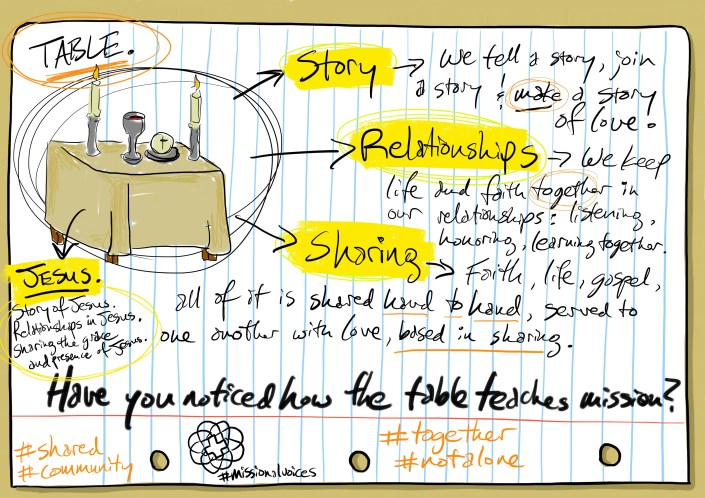 TABLE.
Story → We tell a story, join
a story & make a story
of love.
Relationships → We keep
life and faith together in
our relationships: listening,
honoring, learning together.
Sharing → Faith, life, gospel,
all of it is shared hand to hand, served to
one another with love, based in sharing.
JESUS.
Story of Jesus.
Relationships in Jesus.
Sharing the grace
and presence of Jesus.
Have you noticed how the table teaches mission?
#shared
#community
#missionalvoices
#together
#notalone